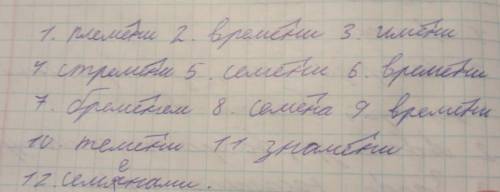 1. племени 2. времени 3. имени
4. стремени 5. семени 6. времени
7. бременем 8. семена 9 времени
10. темени 11. знамени
12. семенами.